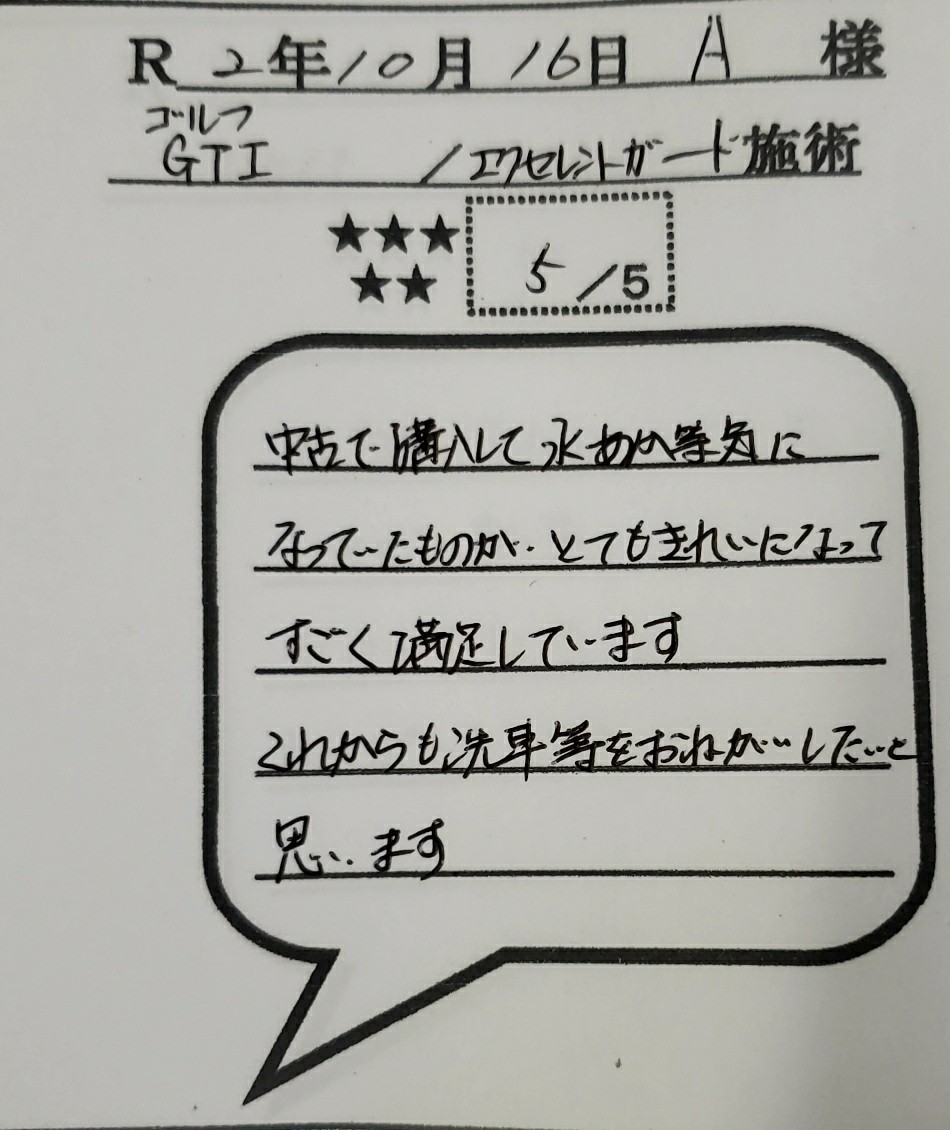 R 2年10月16日 A 様
ゴルフ
GTI / エクセレントガード施術
★★★
★★
5/5
中古で購入して水あか等気に
なっていたものが、とてもきれいになって
すごく満足しています
これからも洗車等をおねがいしたいと
思います